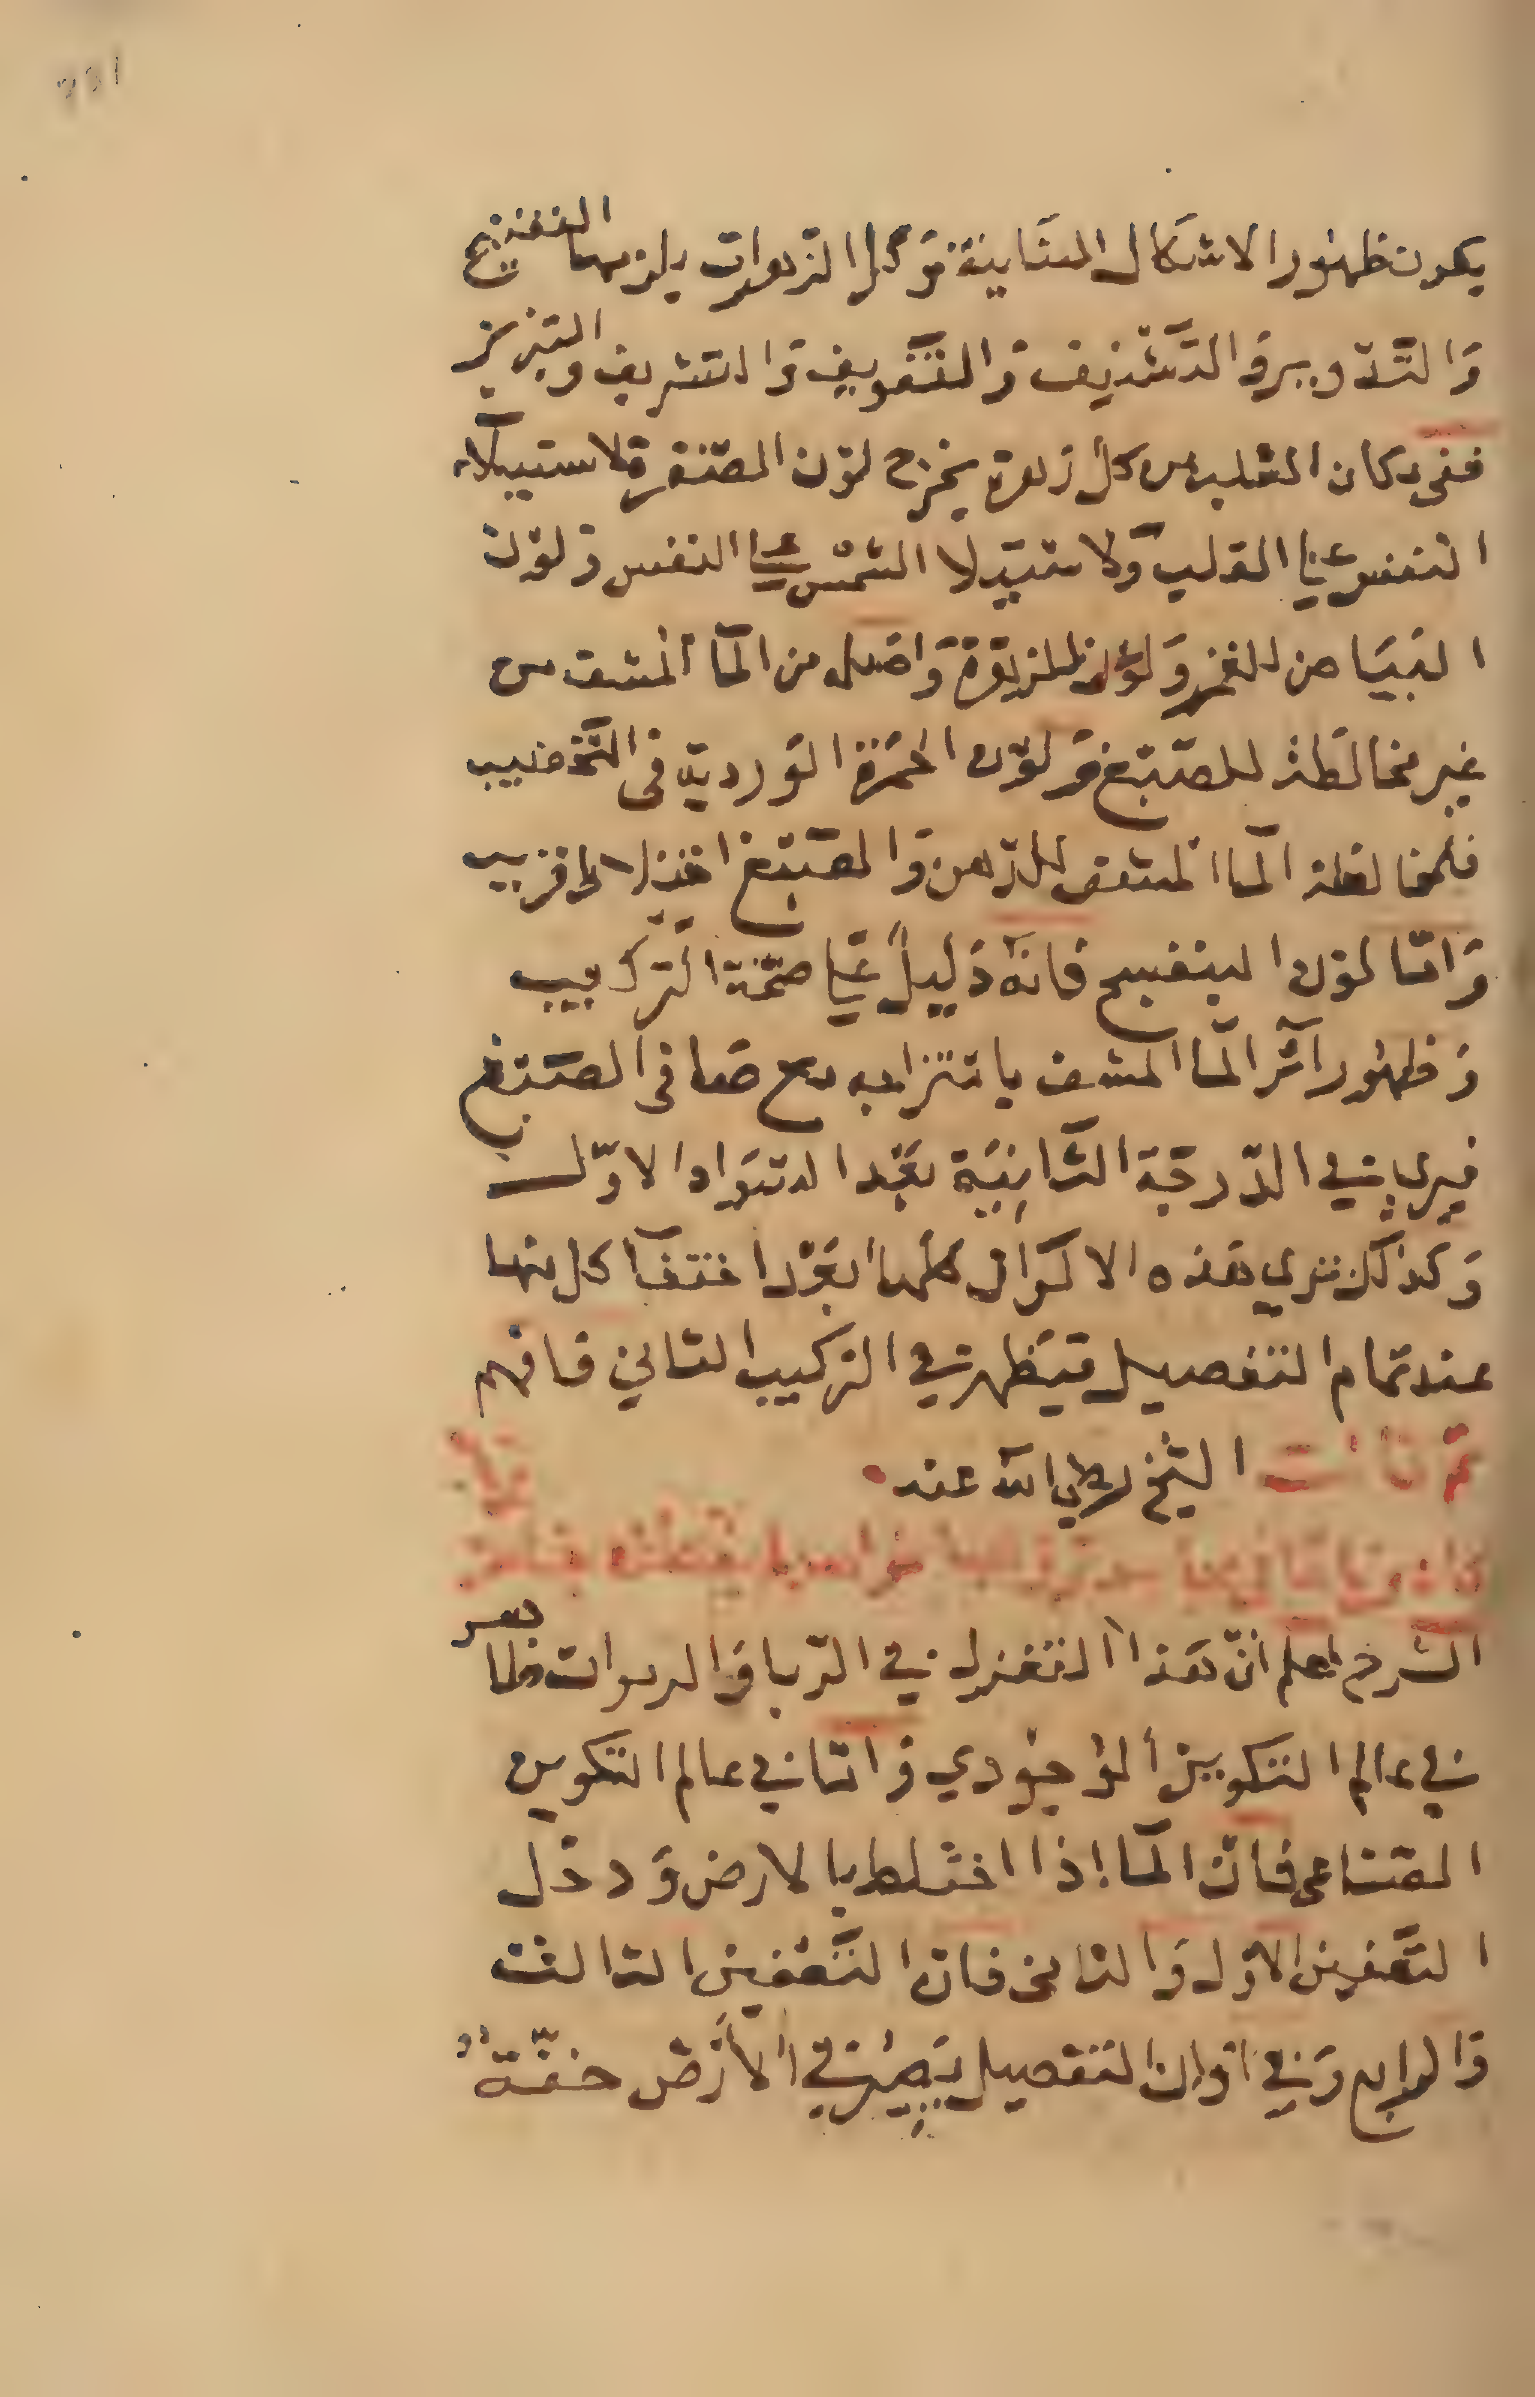 يكون ظهور الاشكال المتباينة وَكل الزهورات يلزمها التفتيح
وَالتّدوير وَالتشنيف وَالتّفويف وَالتشريف والتبزيز
ففى مكان القلب من كل زهرة يخرج لون الصّفرة لاستيلاء
النفس على القلب وَلاستيلا الشمس على النفس وَلون
البَيَاض من القمر وَلون الزرقة وَاصل من الماَ المشف من
غير مخالطة للصّبغ وَلون الحمَرة الوَرديّة فى التّخضيب
فلمخالطة الماَ المشف للدّهن وَالصّبغ اختلاط قريب
وَامّا لون البنفسج فانهُ دَليلٌ على صحّة التركيب
وَظهور اثر الماَ المشف بامتزاجه مع صَافى الصّبغ
فيرى في الدّرجَة الثّانِيَة بعَد السّوَاد الاوّل
وَكذلك ترى هَذه الالوَان كلهَا بعَد اختفآ كل منها
عند تمام التفصيل فيَظهر في التركيب الثاني فافهم
قَالَ الشيخ رضى الله عنه
الشرح اعلم انّ هَذا التغزل في الرّبا وَالربوات
في عالم التكوين الوُجوُدي وَامّا في عالم التكوين
الصّناعى فانّ الماَ اذا اختلط بالارض وَدخَل
التّعفين الاوّل وَالثانى فان التّعفين الثالث
وَالرابع وَفي اوان التفصيل يَصِير في الأرْض خفّة